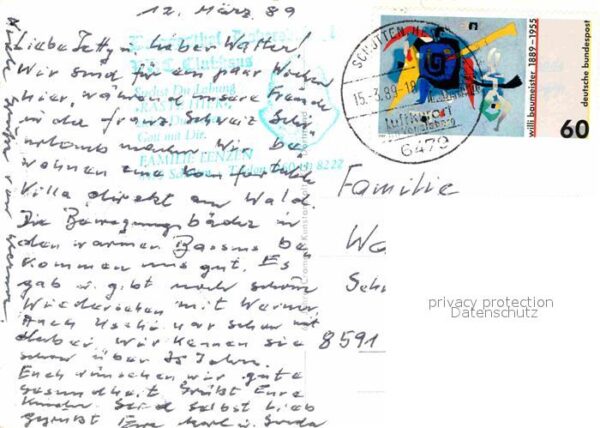 12. März 89
Liebe Jetty, lieber Walter!
Wir sind für ein paar Wochen
hier, während unsere Freunde
in der franz. Schweiz Schi
urlaub machen. Wir be
wohnen eine komfortable
Villa direkt am Wald.
Die Bewegungsbäder in
den warmen Bassins be
kommen uns gut. Es
gab u. gibt noch schöne
Wiedersehen mit Werner.
Auch Uschi war schon mit
dabei. Wir kennen sie
schon über 35 Jahre.
Euch wünschen wir gute
Gesundheit. Grüßt Eure
Kinder. Seid selbst lieb
gegrüßt Eure
Clubhaus
Suchst Du Labung
RASTE HIER
Gott mit Dir.
FAMILIE LENZEN
8222
SCHOTTEN, HESS
15.-3.89-18
Luftkurort
Vogelsberg
6479
willi baumeister 1889-1955
deutsche bundespost
60
Familie
Wa
Sch
8591
privacy protection
Datenschutz